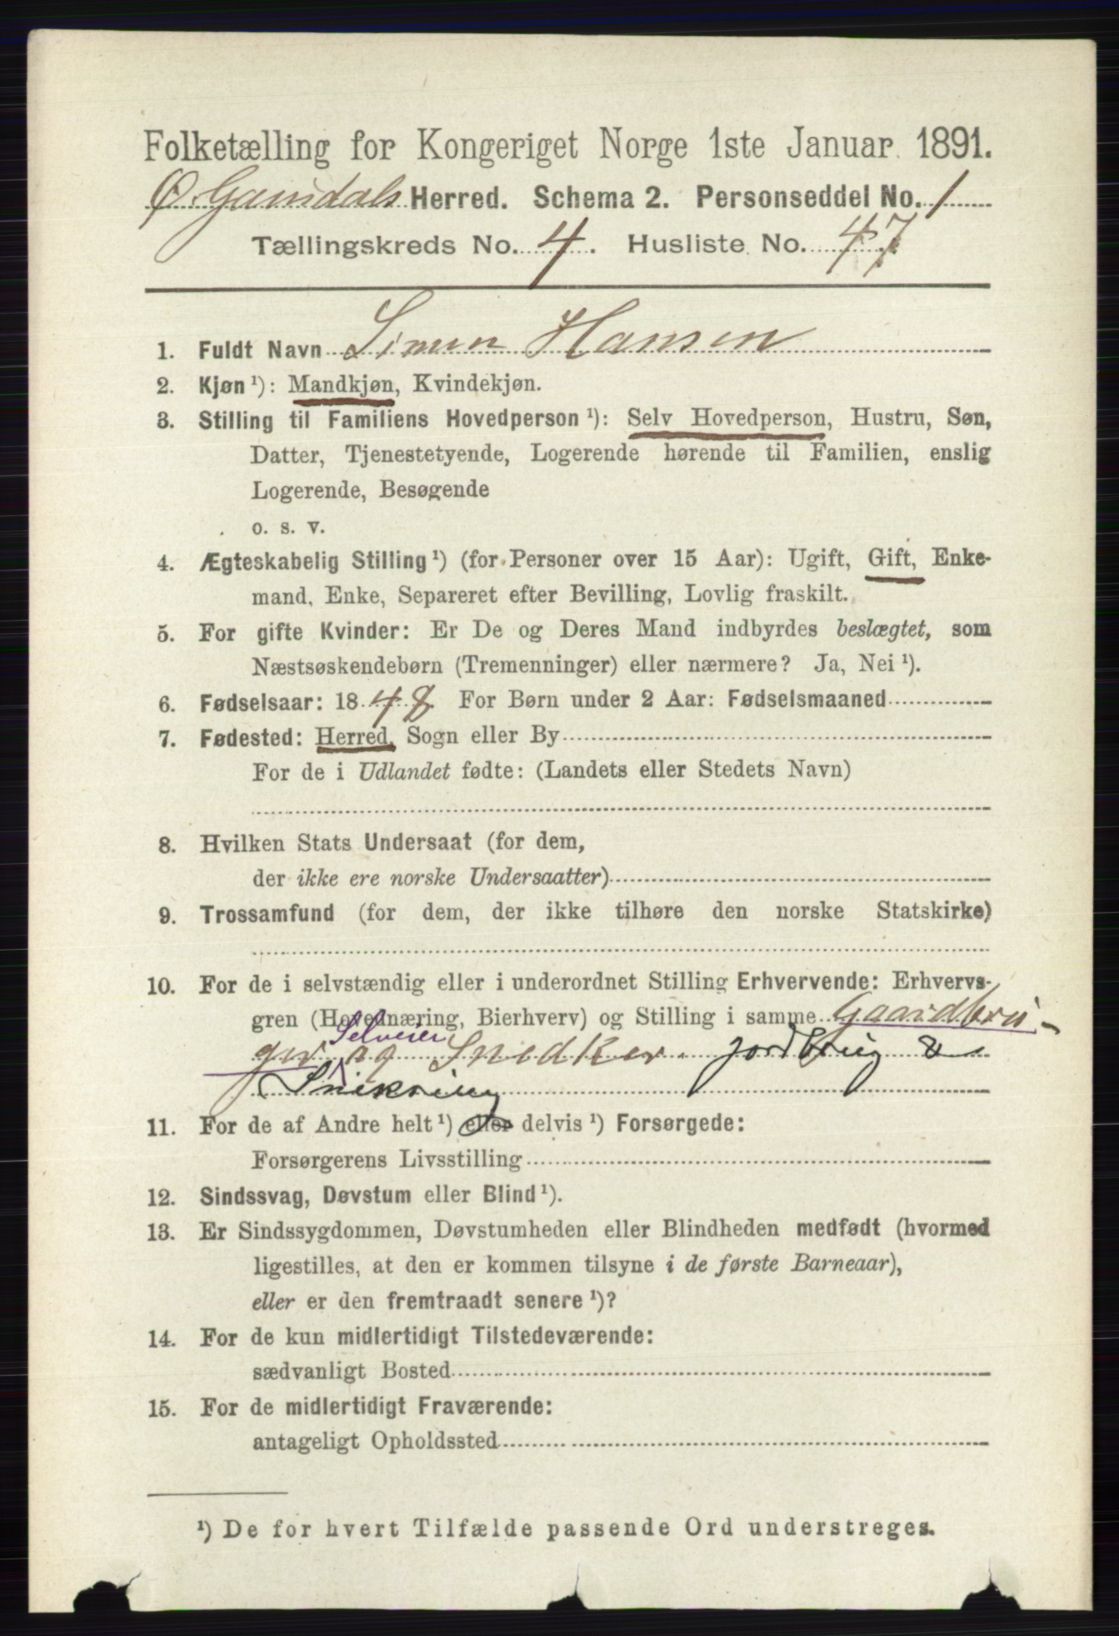 Folketælling for Kongeriget Norge 1ste Januar 1891.
Ø. Gausdals Herred. Schema 2. Personseddel No. 1
Tællingskreds No. 4. Husliste No. 47
1. Fuldt Navn Simen Hansen
2. Kjøn ¹): Mandkjøn, Kvindekjøn.
3. Stilling til Familiens Hovedperson ¹): Selv Hovedperson, Hustru, Søn,
Datter, Tjenestetyende, Logerende hørende til Familien, enslig
Logerende, Besøgende
o. s. v.
4. Ægteskabelig Stilling ¹) (for Personer over 15 Aar): Ugift, Gift, Enke-
mand, Enke, Separeret efter Bevilling, Lovlig fraskilt.
5. For gifte Kvinder: Er De og Deres Mand indbyrdes beslægtet, som
Næstsøskendebørn (Tremenninger) eller nærmere? Ja, Nei ¹).
6. Fødselsaar: 1848 For Børn under 2 Aar: Fødselsmaaned
7. Fødested: Herred, Sogn eller By
For de i Udlandet fødte: (Landets eller Stedets Navn)
8. Hvilken Stats Undersaat (for dem,
der ikke ere norske Undersaatter)
9. Trossamfund (for dem, der ikke tilhøre den norske Statskirke)
10. For de i selvstændig eller i underordnet Stilling Erhvervende: Erhvervs-
gren (Hovednæring, Bierhverv) og Stilling i samme Gaardbru-
Selveier
ger og Snedker. jordbrug &
Snikring
11. For de af Andre helt ¹) eller delvis ¹) Forsørgede:
Forsørgerens Livsstilling
12. Sindssvag, Døvstum eller Blind ¹).
13. Er Sindssygdommen, Døvstumheden eller Blindheden medfødt (hvormed
ligestilles, at den er kommen tilsyne i de første Barneaar),
eller er den fremtraadt senere ¹)?
14. For de kun midlertidigt Tilstedeværende:
sædvanligt Bosted
15. For de midlertidigt Fraværende:
antageligt Opholdssted
¹) De for hvert Tilfælde passende Ord understreges.